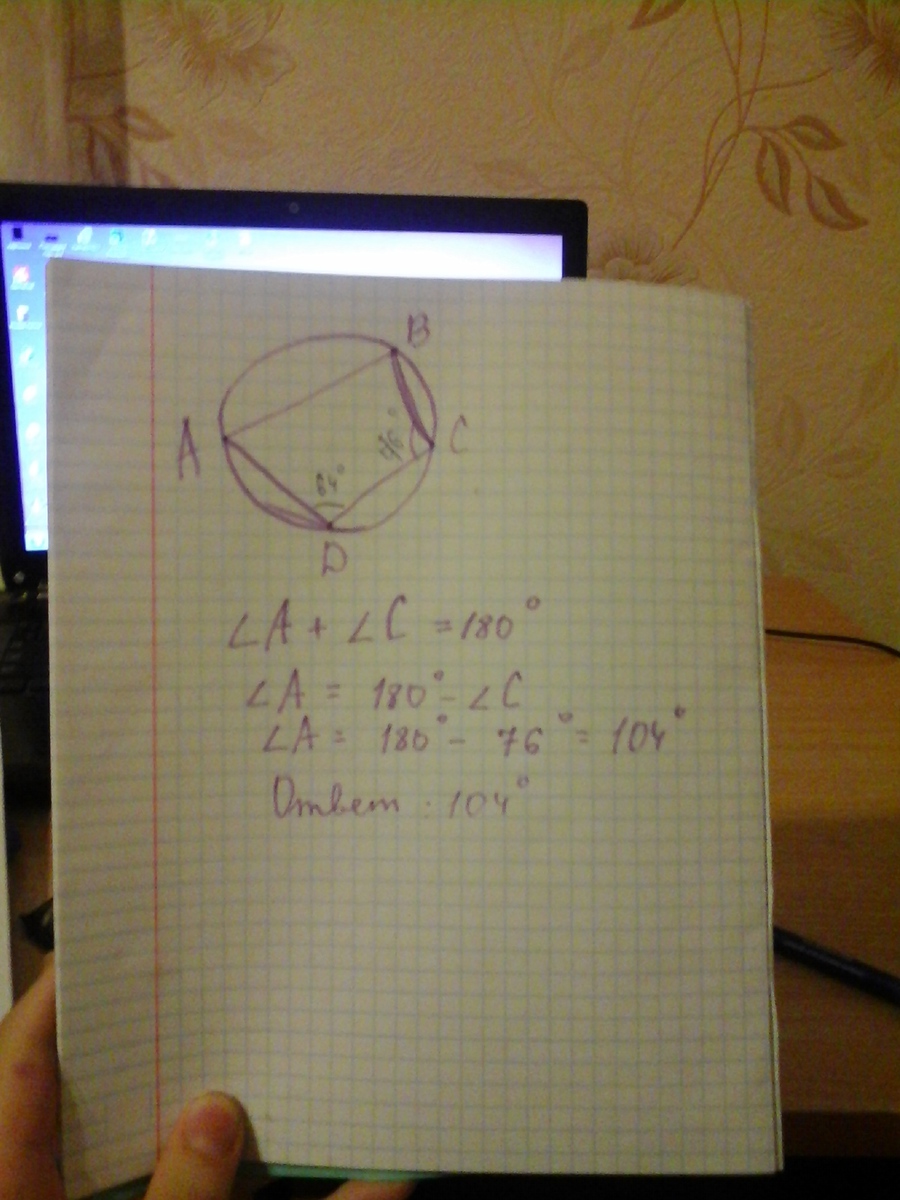 B
A
C
76°
64°
D
∠A + ∠C = 180°
∠A = 180° - ∠C
∠A = 180° - 76° = 104°
Ответ : 104°